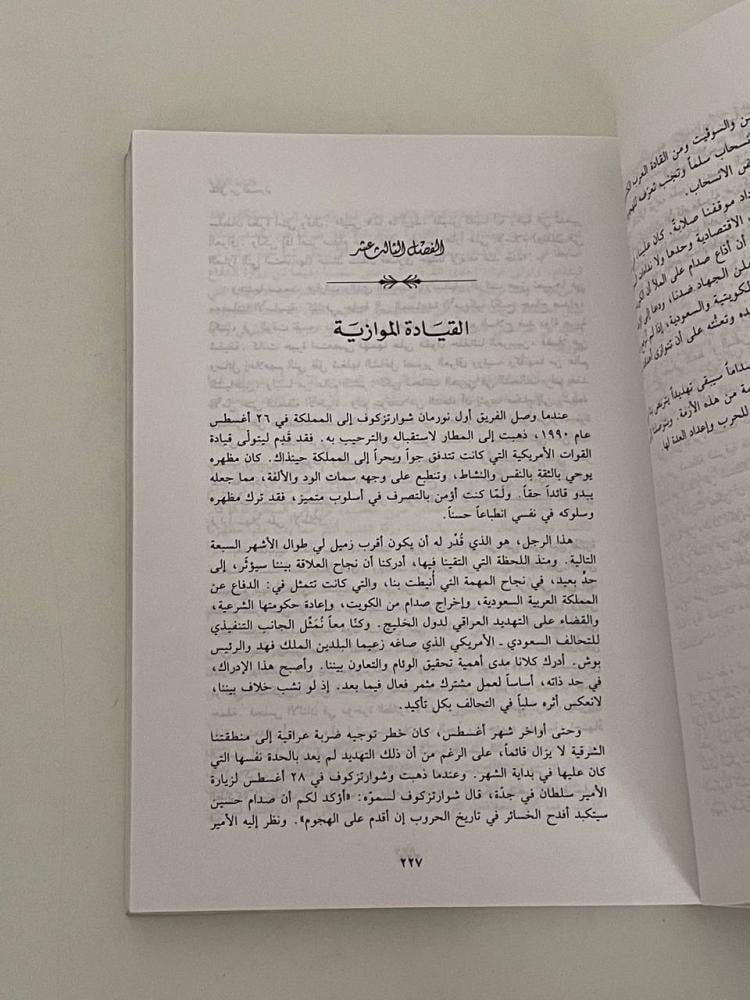 الفصل الثالث عشر
القيادة الموازية
عندما وصل الفريق أول نورمان شوارتزكوف إلى المملكة في ٢٦ أغسطس
عام ١٩٩٠، ذهبت إلى المطار لاستقباله والترحيب به. فقد قدِم ليتولّى قيادة
القوات الأمريكية التي كانت تتدفق جواً وبحراً إلى المملكة حينذاك. كان مظهره
يوحي بالثقة بالنفس والنشاط، وتنطبع على وجهه سمات الود والألفة، مما جعله
يبدو قائداً حقاً. ولَمّا كنت أؤمن بالتصرف في أسلوب متميز، فقد ترك مظهره
وسلوكه في نفسي انطباعاً حسناً.
هذا الرجل، هو الذي قُدِّر له أن يكون أقرب زميل لي طوال الأشهر السبعة
التالية. ومنذ اللحظة التي التقينا فيها، أدركنا أن نجاح العلاقة بيننا سيؤثّر، إلى
حدٍّ بعيد، في نجاح المهمة التي أُنيطت بنا، والتي كانت تتمثل في: الدفاع عن
المملكة العربية السعودية، وإخراج صدام من الكويت، وإعادة حكومتها الشرعية،
والقضاء على التهديد العراقي لدول الخليج. وكنّا معاً نُمَثّل الجانب التنفيذي
للتحالف السعودي ـ الأمريكي الذي صاغه زعيما البلدين الملك فهد والرئيس
بوش. أدرك كلانا مدى أهمية تحقيق الوئام والتعاون بيننا. وأصبح هذا الإدراك،
في حد ذاته، أساساً لعمل مشترك مثمر فعال فيما بعد. إذ لو نشب خلاف بيننا،
لانعكس أثره سلباً في التحالف بكل تأكيد.
وحتى أواخر شهر أغسطس، كان خطر توجيه ضربة عراقية إلى منطقتنا
الشرقية لا يزال قائماً، على الرغم من أن ذلك التهديد لم يعد بالحدة نفسها التي
كان عليها في بداية الشهر. وعندما ذهبت وشوارتزكوف في ٢٨ أغسطس لزيارة
الأمير سلطان في جدّة، قال شوارتزكوف لسموّه: «أؤكد لكم أن صدام حسين
سيتكبد أفدح الخسائر في تاريخ الحروب إن أقدم على الهجوم». ونظر إليه الأمير
٢٢٧
ن والسوقيت ومن القادة العرب
نسحاب سلماً وتجنب
ض الانسحاب.
داد موقفنا صلابةً. كان علينا
الاقتصادية وحدها
أن أذاع صدام على الملأ أن
لن الجهاد ضدنا، ودعا إلى
لكويتية والسعودية،
ده وتعنّته على أن
صداماً سيبقى تهديداً
مة من هذه الأزمة.
للحرب وإعداد العدة لها.